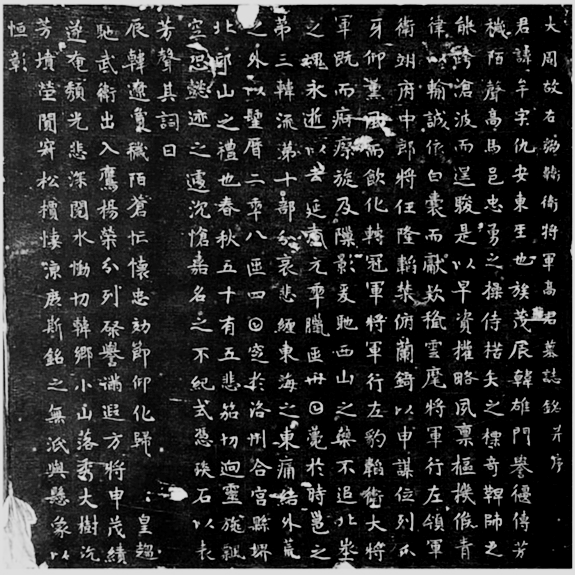 大周故右豹韜衛將軍高君墓誌銘并序
君諱牟字仇安東𤯔也族茂辰韓雄門譽偃傳芳
穢陌聲高馬邑忠勇之操侍楛矢之標奇鞞師之
能跨滄波而逞駿是以早資權略夙稟樞機候青
律以輸誠依白囊而獻款授雲麾將軍行左領軍
衛翊府中郎將任隆韜禁俯蘭錡以申謀位列爪
牙仰熏風而飲化轉冠軍將軍行左豹韜衛大將
軍既而痾瘵旋及隟影爰馳西山之藥不追北峯
之魂永逝以去延𡕀元𠡦臘𠥱卅𡆠薨於時邕之
第三韓流第十部分哀悲纏東海之東痛結外荒
之外以𨲢曆二𠡦八𠥱四𡆠窆於洛州合宮縣界
北邙山之禮也春秋五十有五悲笳切逈靈旐飄
空恐懿迹之遽沉愴嘉名之不紀式憑琰石以表
芳聲其詞曰
辰韓遼敻穢陌蒼忙懷忠効節仰化歸皇超
馳武衛出入鷹揚榮分列棨譽滿遐方將申茂績
遽奄頹光悲深閱水慟切韓鄉小山落秀大樹沉
芳墳塋闃寂松檟悽涼庶斯銘之無泯與懸象以
恒彰